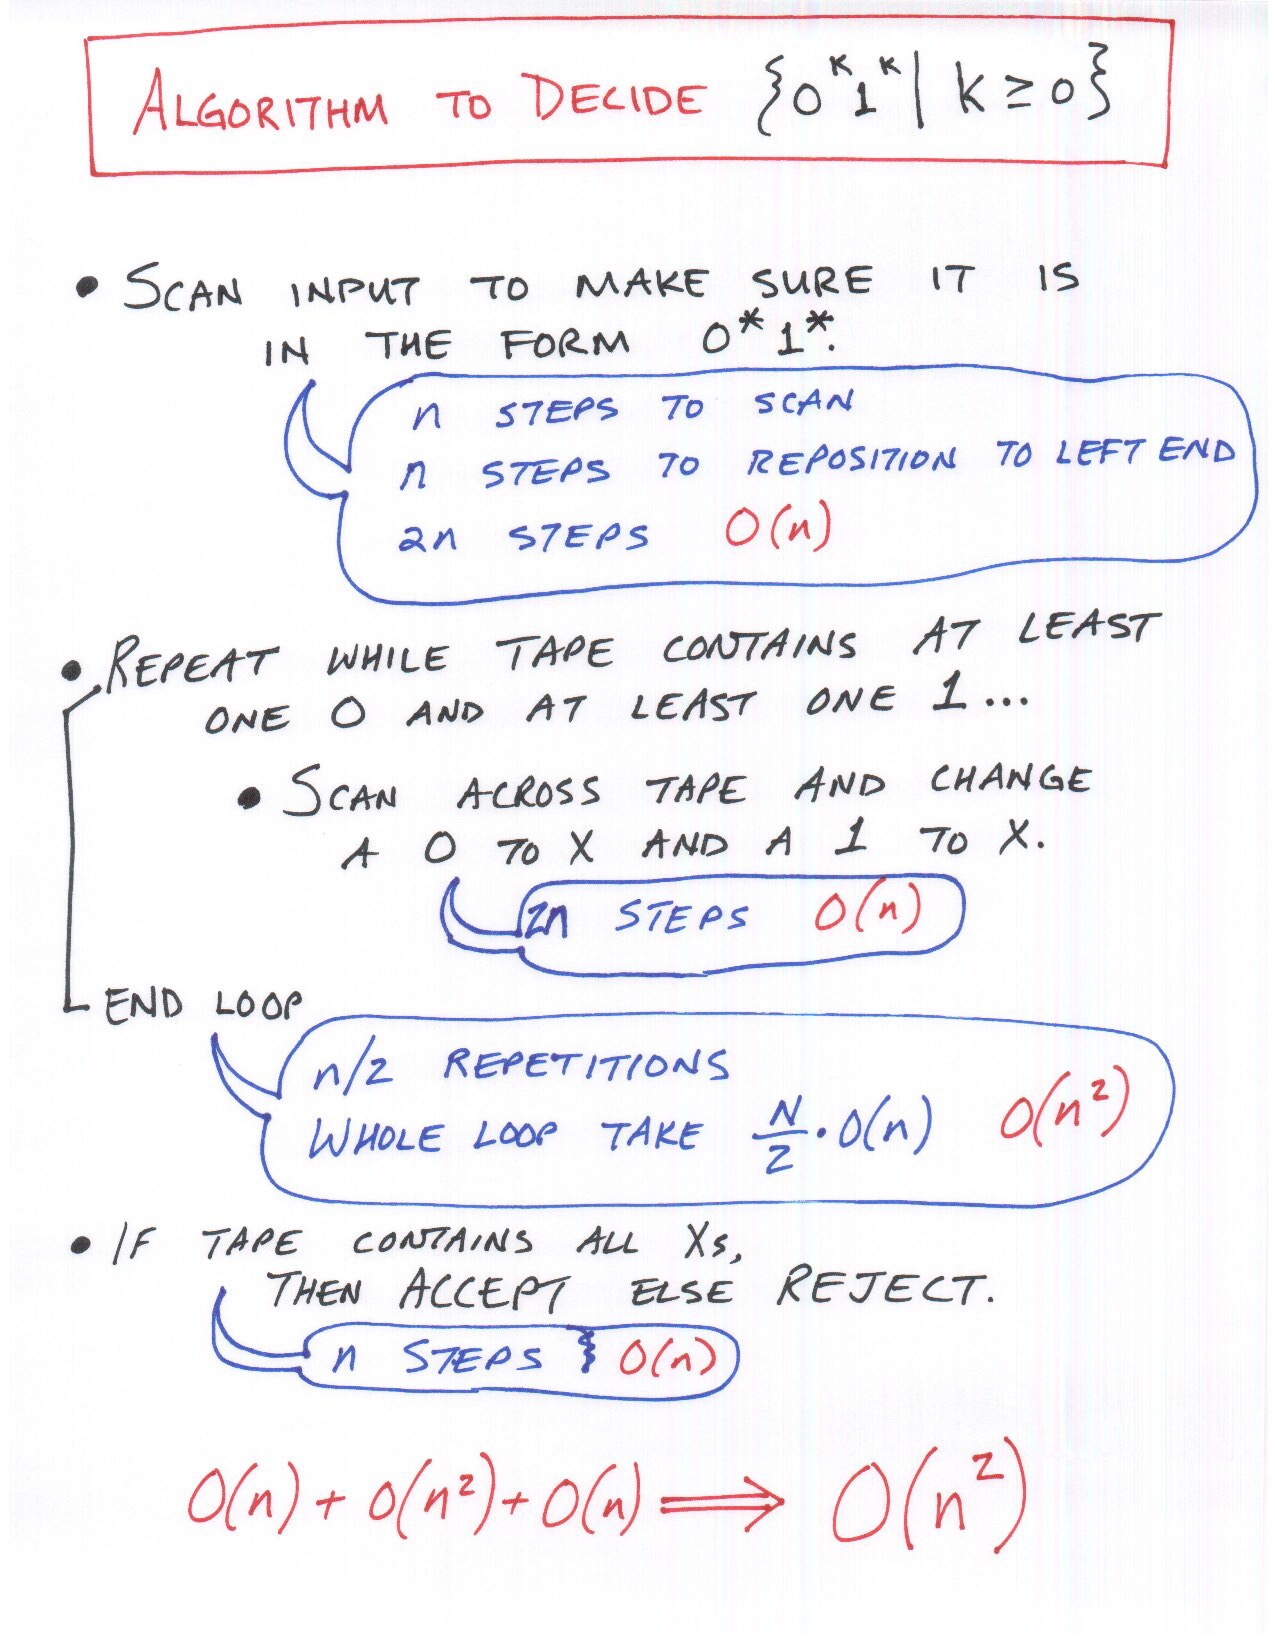 ALGORITHM TO DECIDE {0ᴷ1ᴷ | K ≥ 0}
• SCAN INPUT TO MAKE SURE IT IS
IN THE FORM 0*1*.
n STEPS TO SCAN
n STEPS TO REPOSITION TO LEFT END
2n STEPS O(n)
• REPEAT WHILE TAPE CONTAINS AT LEAST
ONE 0 AND AT LEAST ONE 1...
• SCAN ACROSS TAPE AND CHANGE
A 0 TO X AND A 1 TO X.
2n STEPS O(n)
END LOOP
n/2 REPETITIONS
WHOLE LOOP TAKE N/2 · O(n) O(n²)
• IF TAPE CONTAINS ALL Xs,
THEN ACCEPT ELSE REJECT.
n STEPS O(n)
O(n) + O(n²) + O(n) ⟹ O(n²)